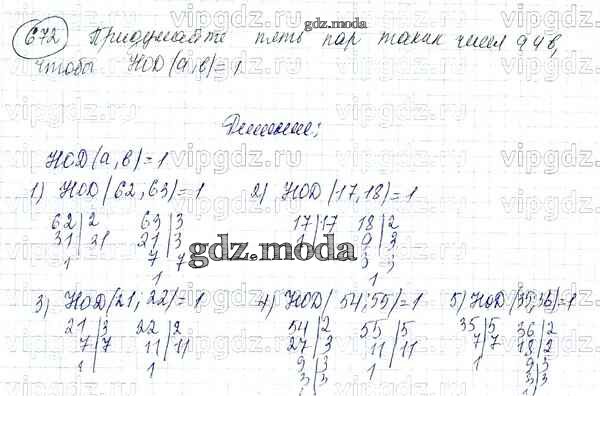 672 Придумайте пять пар таких чисел a и b,
чтобы НОД(a,b)=1.
Решение:
НОД(a,b)=1
1) НОД(62,63)=1 2) НОД(17,18)=1
62|2 63|3 17|17 18|2
31|31 21|3 1 9|3
1 7|7 3|3
1 1
gdz.moda
3) НОД(21,22)=1 4) НОД(54,55)=1 5) НОД(35,36)=1
21|3 22|2 54|2 55|5 35|5 36|2
7|7 11|11 27|3 11|11 7|7 18|2
1 1 9|3 1 1 9|3
3|3 3|3